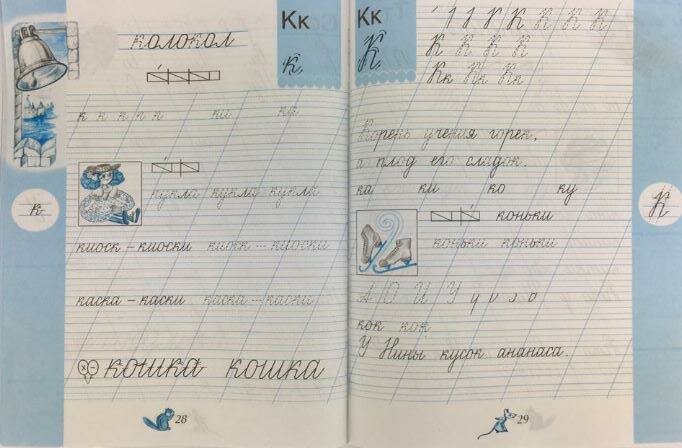 колокол
Кк
к
к к к к к ки ка
кукла кукла кукла
к
киоск – киоски киоск – киоски
каска – каски каска – каски
кошка кошка
28
Кк
К
К К К К К
К К К К
Кк Кк Кк
Корень учения горек,
а плод его сладок.
ка ки ко ку
К
коньки
коньки коньки
А О И У
кок кок
У Нины кусок ананаса.
29